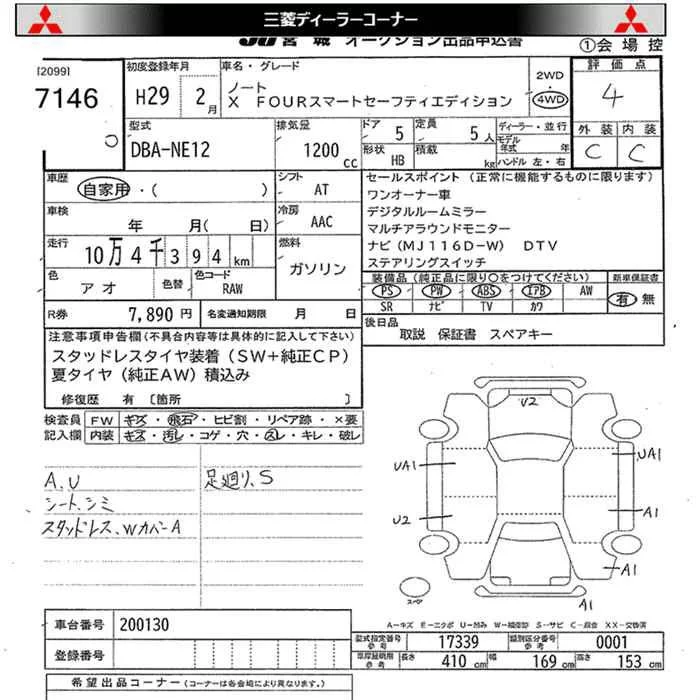 三菱ディーラーコーナー
JU宮城 オークション出品申込書
①会場控
[2099]
7146
初度登録年月
H29 2月
車名・グレード
ノート
X FOURスマートセーフティエディション
2WD・4WD
評価点
4
型式
DBA-NE12
排気量
1200cc
ドア 5
形状 HB
定員 5人
積載 kg
ディーラー・並行
モデル年式 年
ハンドル 左・右
外装 内装
C C
車歴
自家用・( )
シフト AT
車検
年 月( 日)
冷房 AAC
走行
10万4千394km
燃料
ガソリン
色
アオ
色替
色コード
RAW
R券 7,890円
名変通知期限 月 日
セールスポイント (正常に機能するものに限ります)
ワンオーナー車
デジタルルームミラー
マルチアラウンドモニター
ナビ(MJ116D-W) DTV
ステアリングスイッチ
装備品(純正品に限り○をつけてください)
PS PW ABS エアB AW
SR ナビ TV カワ
新車保証書
有・無
後日品
取説 保証書 スペアキー
注意事項申告欄(不具合内容等は具体的に記入して下さい)
スタッドレスタイヤ装着(SW+純正CP)
夏タイヤ(純正AW)積込み
修復歴 有 〔箇所 〕
検査員記入欄
FW キズ・飛石・ヒビ割・リペア跡・×要
内装 キズ・汚レ・コゲ・穴・スレ・キレ・破レ
A、U
シート、シミ
スタッドレス、Wカバー A
足廻り、S
U2
UA1
UA1
U2
A1
A1
A1
スペア
A-キズ E-エクボ U-凹み W-補修跡 S-サビ C-腐食 XX-交換済
車台番号 200130
登録番号
型式指定番号 参考 17339
類別区分番号 参考 0001
車庫証明用 参考 長さ 410cm 幅 169cm 高さ 153cm
希望出品コーナー(コーナーは各会場により異なります。)